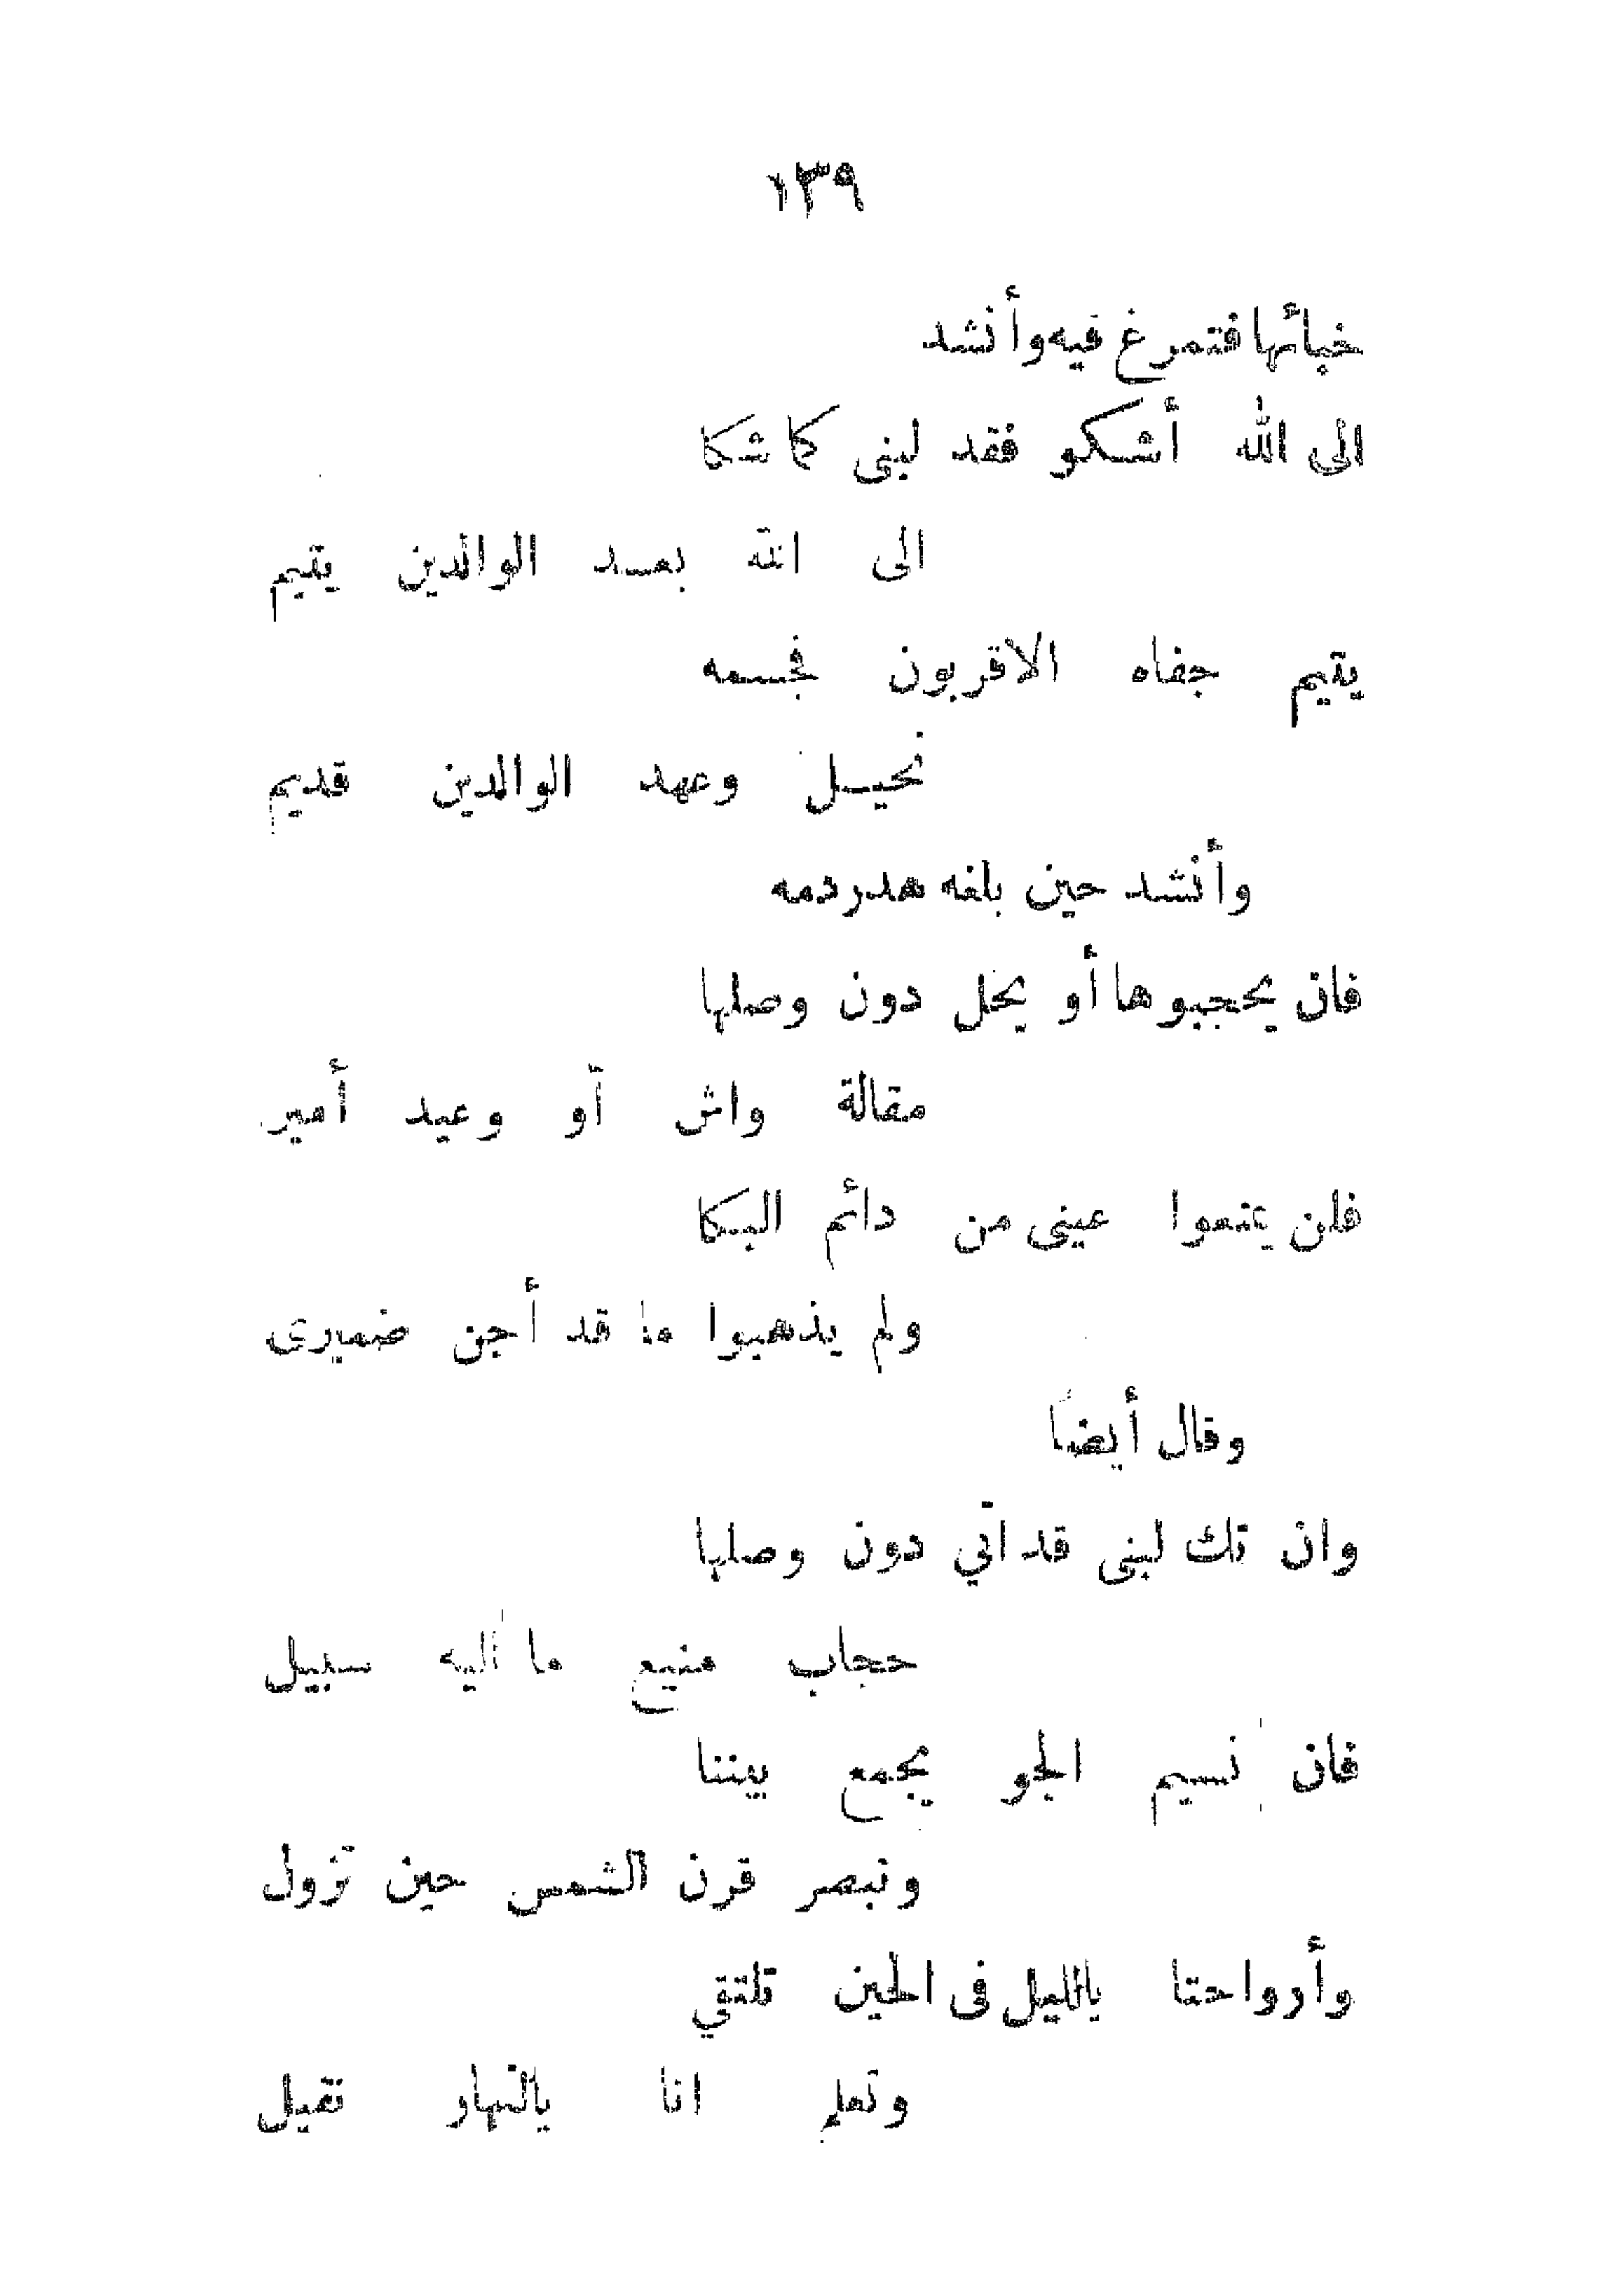 ١٣٩
خبائها فتمرغ فيه وأنشد
الى الله أشكو فقد لبنى كما شكا
الى الله بعد الوالدين يتيم
يتيم جفاه الاقربون فجسمه
نحيل وعهد الوالدين قديم
وأنشد حين بلغه هدر دمه
فان يحجبوها أو يحل دون وصلها
مقالة واش أو وعيد أمير
فلن يمنعوا عينى من دائم البكا
ولم يذهبوا ما قد أجن ضميرى
وقال أيضا
وان تك لبنى قد اتي دون وصلها
حجاب منيع ما اليه سبيل
فان نسيم الجو يجمع بيننا
وتبصر قرن الشمس حين تزول
وأرواحنا بالليل فى الحين تلتقي
وتعلم انا بالنهار نقيل